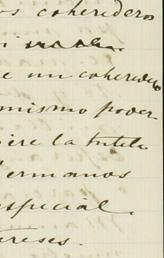 os coherederos
i
e un coheredero
mismo poder
ere la tutela
hermanos
especial.
tereses.